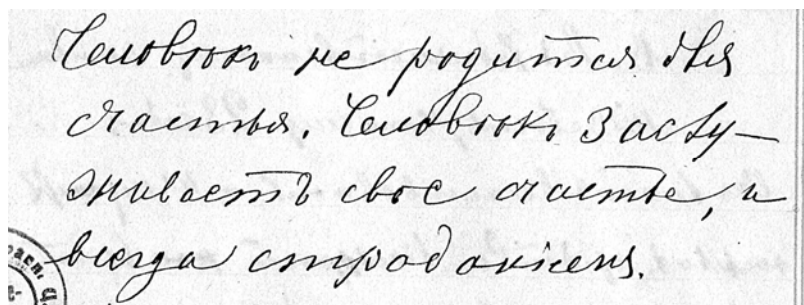 Человѣкъ не родится для
счастья. Человѣкъ заслу-
живаетъ свое счастье, и
всегда страданіемъ.